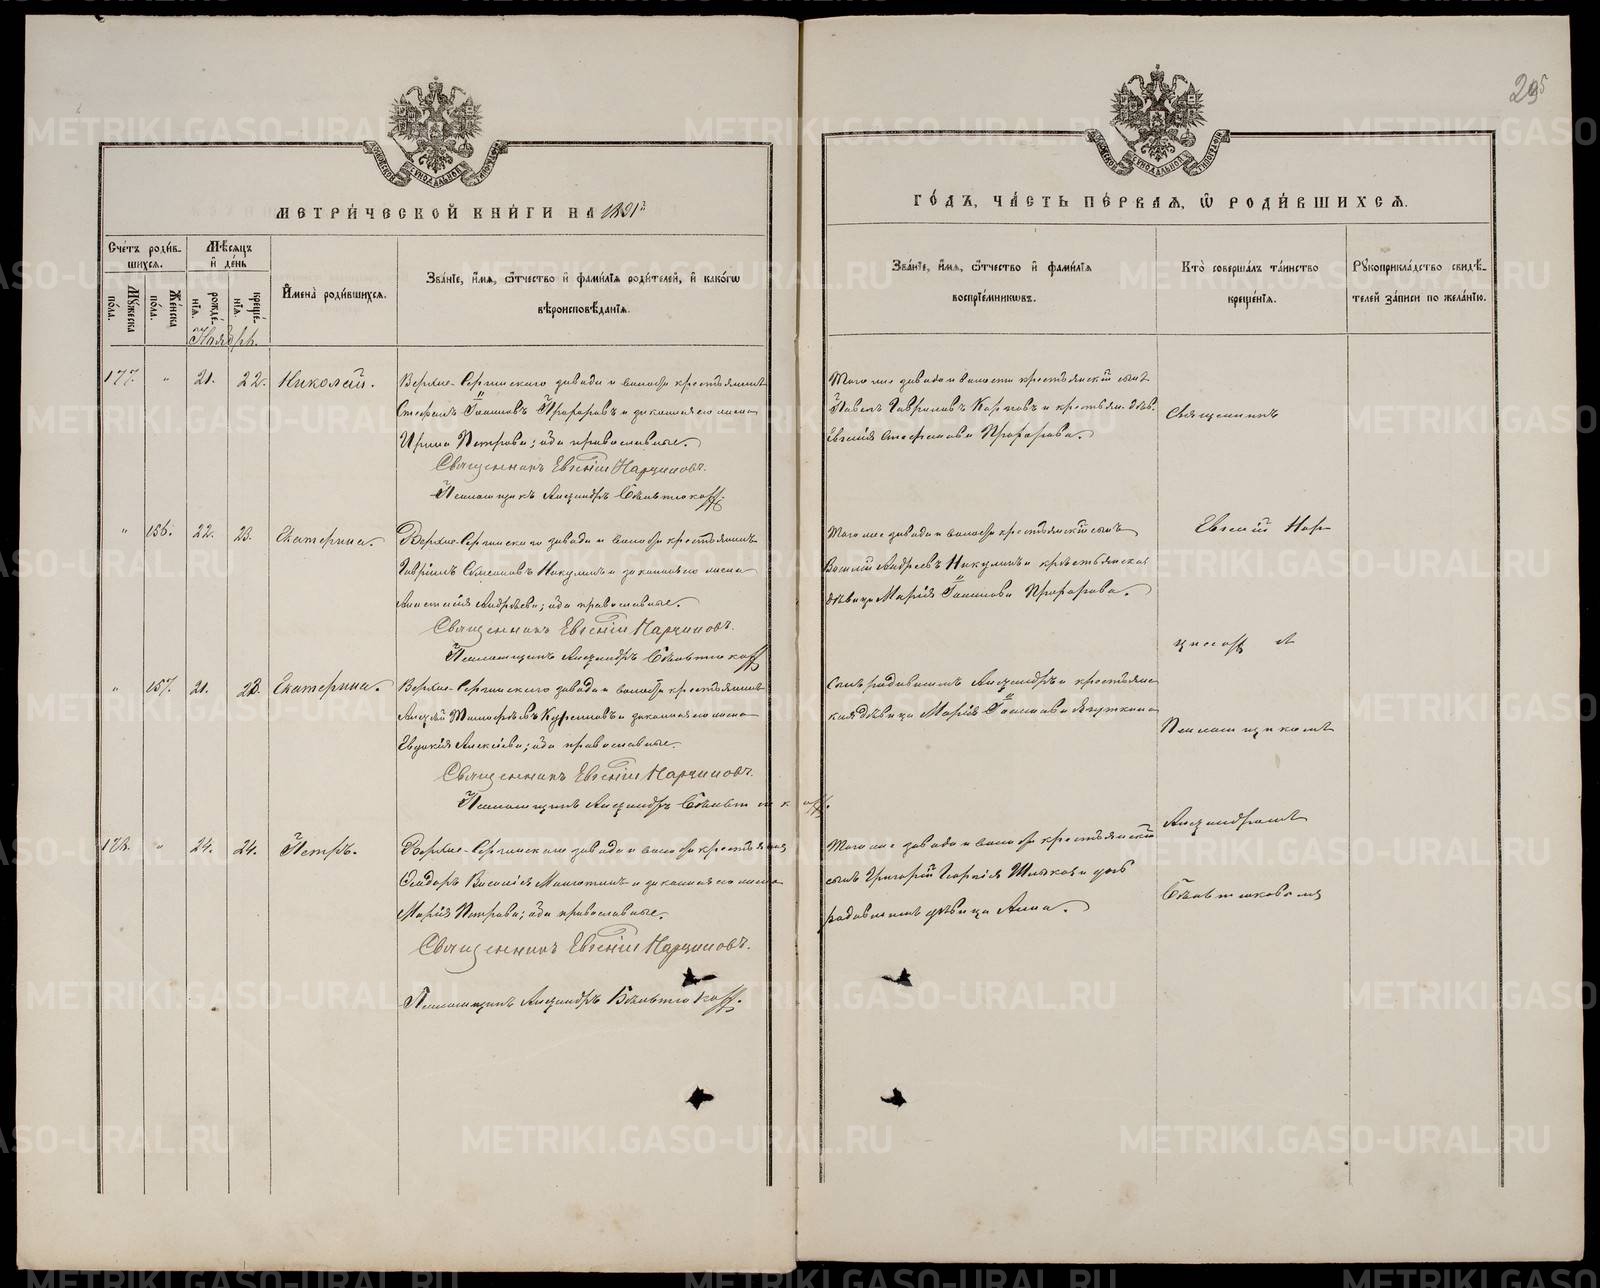 295
МЕТРИ́ЧЕСКОЙ КНИ́ГИ НА 1891й
ГО́ДЪ, ЧА́СТЬ ПЕ́РВАЯ, Ѿ РОДИ́ВШИХСЯ.
Сче́тъ роди́в-
шихся.
Мѣ́сяцъ
и де́нь
Му́жеска
по́ла.
Же́нска
по́ла.
рожде́-
нїя.
креще́-
нїя.
Ноябрь.
И҆мена̀ роди́вшихся.
Зва́нїе, и҆́мя, ѻ҆́тчество и҆ фами́лїя роди́телей, и҆ како́гѡ
вѣроисповѣ́данїя.
Зва́нїе, и҆́мя, ѻ҆́тчество и҆ фами́лїя
воспрїе́мниковъ.
Кто̀ соверша́лъ та́инство
креще́нїя.
Рꙋкоприкла́дство свидѣ́-
телей за́писи по жела́нїю.
177. " 21. 22. Николай.
Верхне-Сергинскаго завода и волости крестьянинъ
Стефанъ Іоанновъ Прохоровъ и законная его жена
Ирина Петрова; оба православные.
Священникъ Евгеній Нарциссовъ.
Псаломщикъ Александръ
Того же завода и волости крестьянскій сынъ
Павелъ Гавриловъ Карповъ и крестьян. дѣв.
Евгенія Стефанова Прохорова.
Священникъ
" 156. 22. 23. Екатерина.
Верхне-Сергинскаго завода и волости крестьянинъ
Гавріилъ Симеоновъ Никулинъ и законная его жена
Анастасія Андреева; оба православные.
Священникъ Евгеній Нарциссовъ.
Псаломщикъ Александръ
Того же завода и волости крестьянскій сынъ
Василій Андреевъ Никулинъ и крестьянская
дѣвица Марія Іоаннова Прохорова.
Евгеній Нар-
циссовъ съ
" 157. 21. 23. Екатерина.
Верхне-Сергинскаго завода и волости крестьянинъ
Алексѣй Тимофѣевъ и законная его жена
Евдокія Алексѣева; оба православные.
Священникъ Евгеній Нарциссовъ.
Псаломщикъ Александръ
Сынъ Александръ и крестьян-
ская дѣвица Марія Іоаннова
Псаломщикомъ
Александромъ
178. " 24. 24. Петръ.
Верхне-Сергинскаго завода и волости крестьянинъ
Ѳеодоръ Василіевъ и законная его жена
Марія Петрова; оба православные.
Священникъ Евгеній Нарциссовъ.
Псаломщикъ Александръ
Того же завода и волости крестьянскій
сынъ Григорій Георгіевъ и дочь
дѣвица Анна.
METRIKI.GASO-URAL.RU